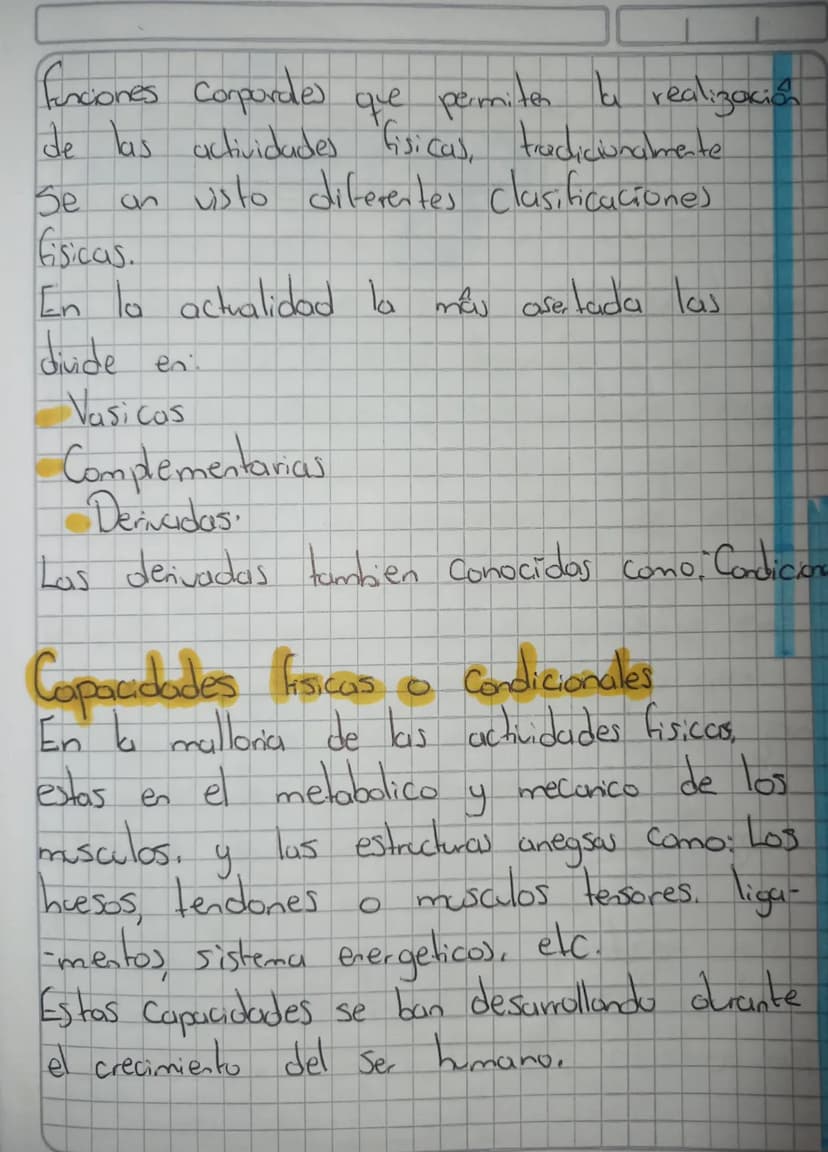 funciones corporales que permiten la realización
de las actividades fisicas, tradicionalmente
se an visto diferentes clasificaciones
fisicas.
En la actualidad la más asertada las
divide en:
Vasicas
Complementarias
Derivadas.
Las derivadas tambien conocidas como: Condicion
Capacidades fisicas o Condicionales
En la malloria de las actividades fisicas,
estas en el metabolico y mecanico de los
musculos, y las estructuras anegsas como: Los
huesos, tendones o musculos tensores, liga-
-mentos, sistema energeticos, etc.
Estas Capacidades se ban desarrollando durante
el crecimiento del ser humano.